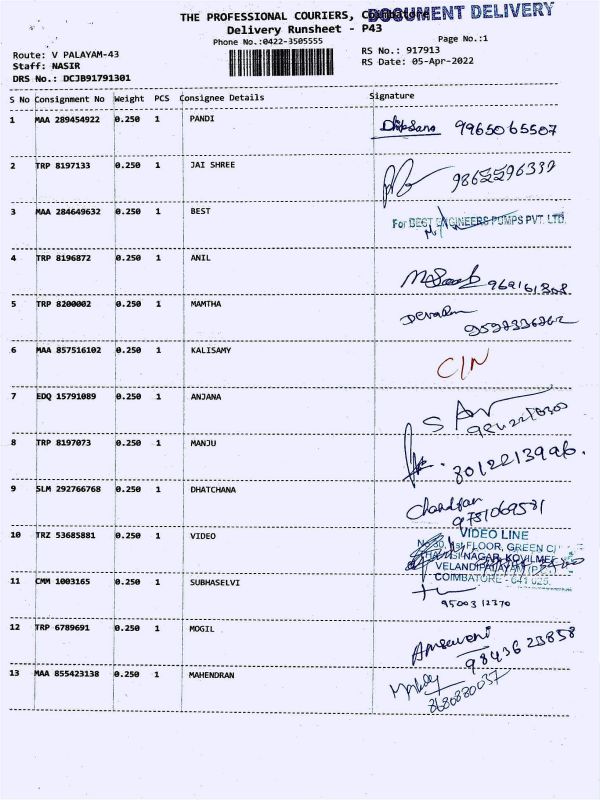 THE PROFESSIONAL COURIERS, Coimbatore
DOCUMENT DELIVERY
Delivery Runsheet - P43
Phone No.:0422-3505555
Page No.:1
Route: V PALAYAM-43
RS No.: 917913
Staff: NASIR
RS Date: 05-Apr-2022
DRS No.: DCJB91791301
S No Consignment No Weight PCS Consignee Details Signature
1 MAA 289454922 0.250 1 PANDI 9965065507
2 TRP 8197133 0.250 1 JAI SHREE
3 MAA 284649632 0.250 1 BEST For BEST ENGINEERS PUMPS PVT. LTD.
4 TRP 8196872 0.250 1 ANIL
5 TRP 8200002 0.250 1 MAMTHA
6 MAA 857516102 0.250 1 KALISAMY C/N
7 EDQ 15791089 0.250 1 ANJANA
8 TRP 8197073 0.250 1 MANJU 8012213996.
9 SLM 292766768 0.250 1 DHATCHANA
9751069581
10 TRZ 53685881 0.250 1 VIDEO VIDEO LINE
1st FLOOR, GREEN
NAGAR, KOVILMEE
VELANDIPALAYAM (P.O.)
COIMBATORE - 641 025.
11 CMM 1003165 0.250 1 SUBHASELVI
95003 12370
12 TRP 6789691 0.250 1 MOGIL
9843623858
13 MAA 855423138 0.250 1 MAHENDRAN
8680880037